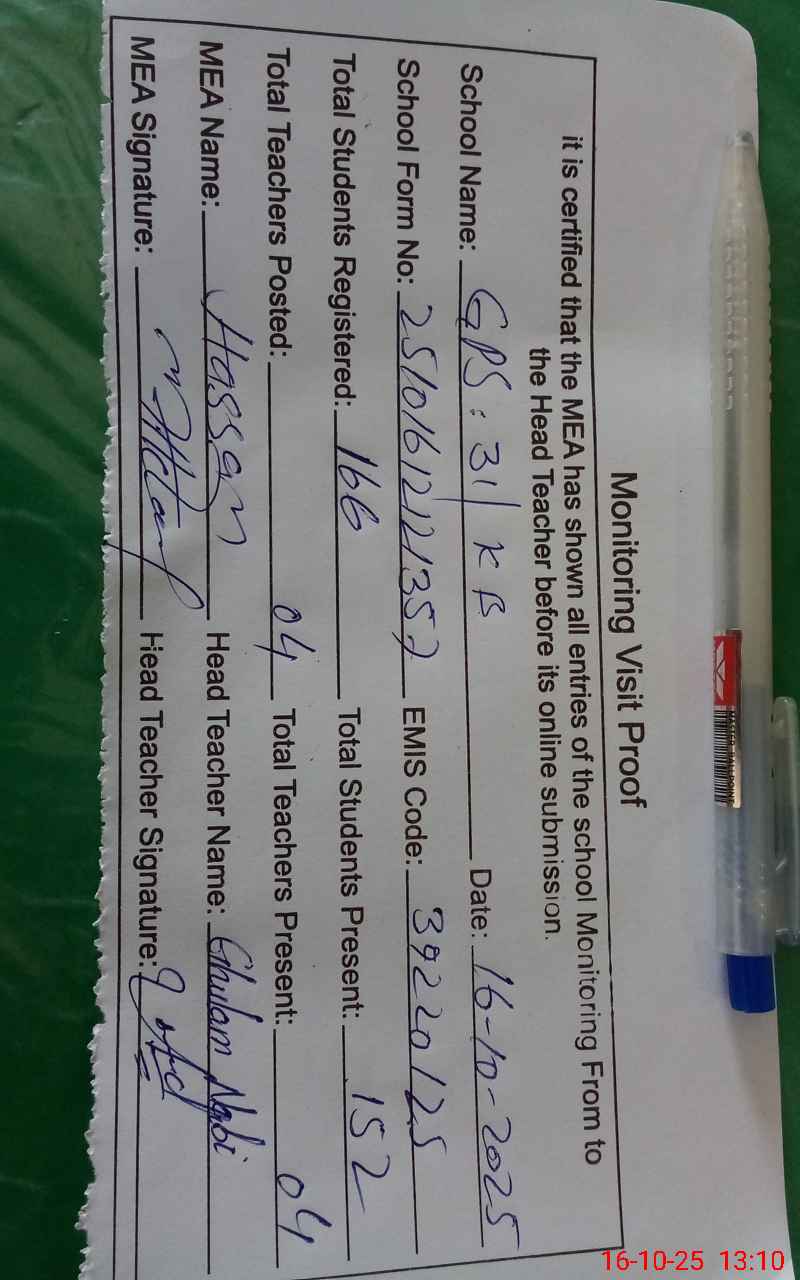 Monitoring Visit Proof
it is certified that the MEA has shown all entries of the school Monitoring From to
the Head Teacher before its online submission.
School Name: GPS : 31 KB Date: 16-10-2025
School Form No: 25101612121357 EMIS Code: 39220125
Total Students Registered: 166 Total Students Present: 152
Total Teachers Posted: 04 Total Teachers Present: 04
MEA Name: Hassan Head Teacher Name: Ghulam Nabi
MEA Signature: Head Teacher Signature:
16-10-25 13:10